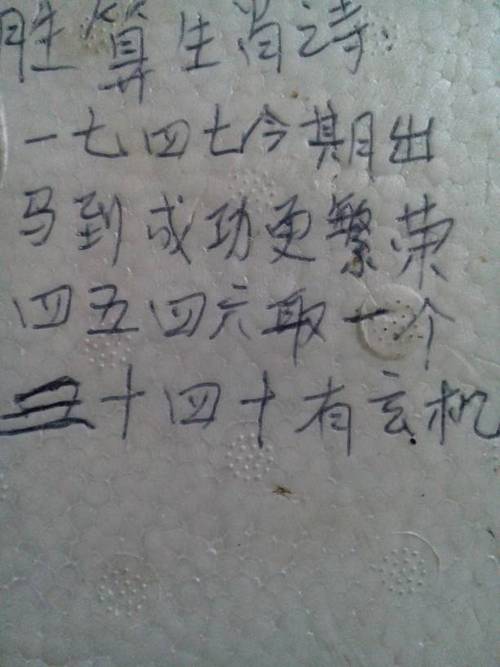 胜算生肖诗
一七四七今期出
马到成功更繁荣
四五四六取一个
二十四十有玄机